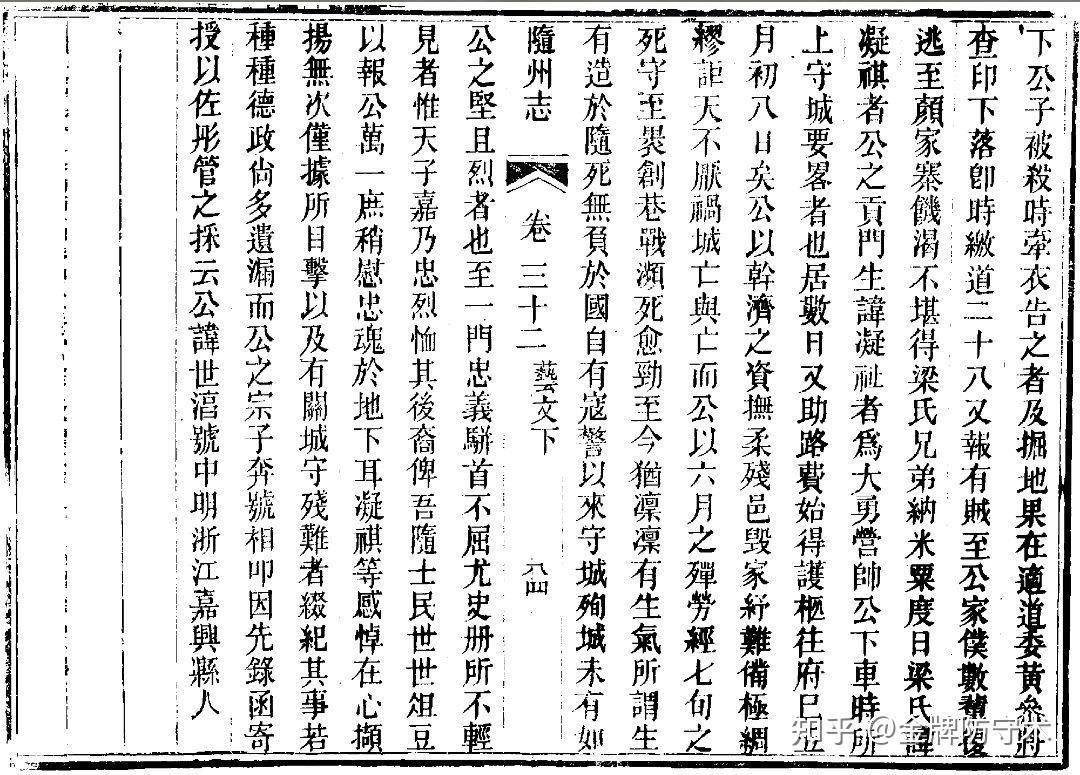 下公子被殺時牽衣告之者及掘地果在適道委黃參府
查印下落卽時繳道二十八又報有賊至公家僕數輩後
逃至顏家寨饑渴不堪得梁氏兄弟納米粟度日梁氏諱
凝祺者公之貢門生諱凝祉者爲大勇營帥公下車時所
上守城要畧者也居數日又助路費始得護柩往府巳五
月初八日矣公以幹濟之資撫柔殘邑毀家紓難備極綢
繆詎天不厭禍城亡與亡而公以六月之殫勞經七旬之
死守至褁創巷戰瀕死愈勁至今猶凛凛有生氣所謂生
有造於隨死無負於國自有寇警以來守城殉城未有如
隨州志 卷三十二 藝文下 八四
公之堅且烈者也至一門忠義駢首不屈尤史册所不輕
見者惟天子嘉乃忠烈恤其後裔俾吾隨士民世世俎豆
以報公萬一庶稍慰忠魂於地下耳凝祺等感悼在心擷
揚無次僅據所目擊以及有關城守殘難者綴紀其事若
種種德政尙多遺漏而公之宗子奔號相叩因先錄函寄
授以佐彤管之採云公諱世淐號中明浙江嘉興縣人
知乎 @金牌防守六